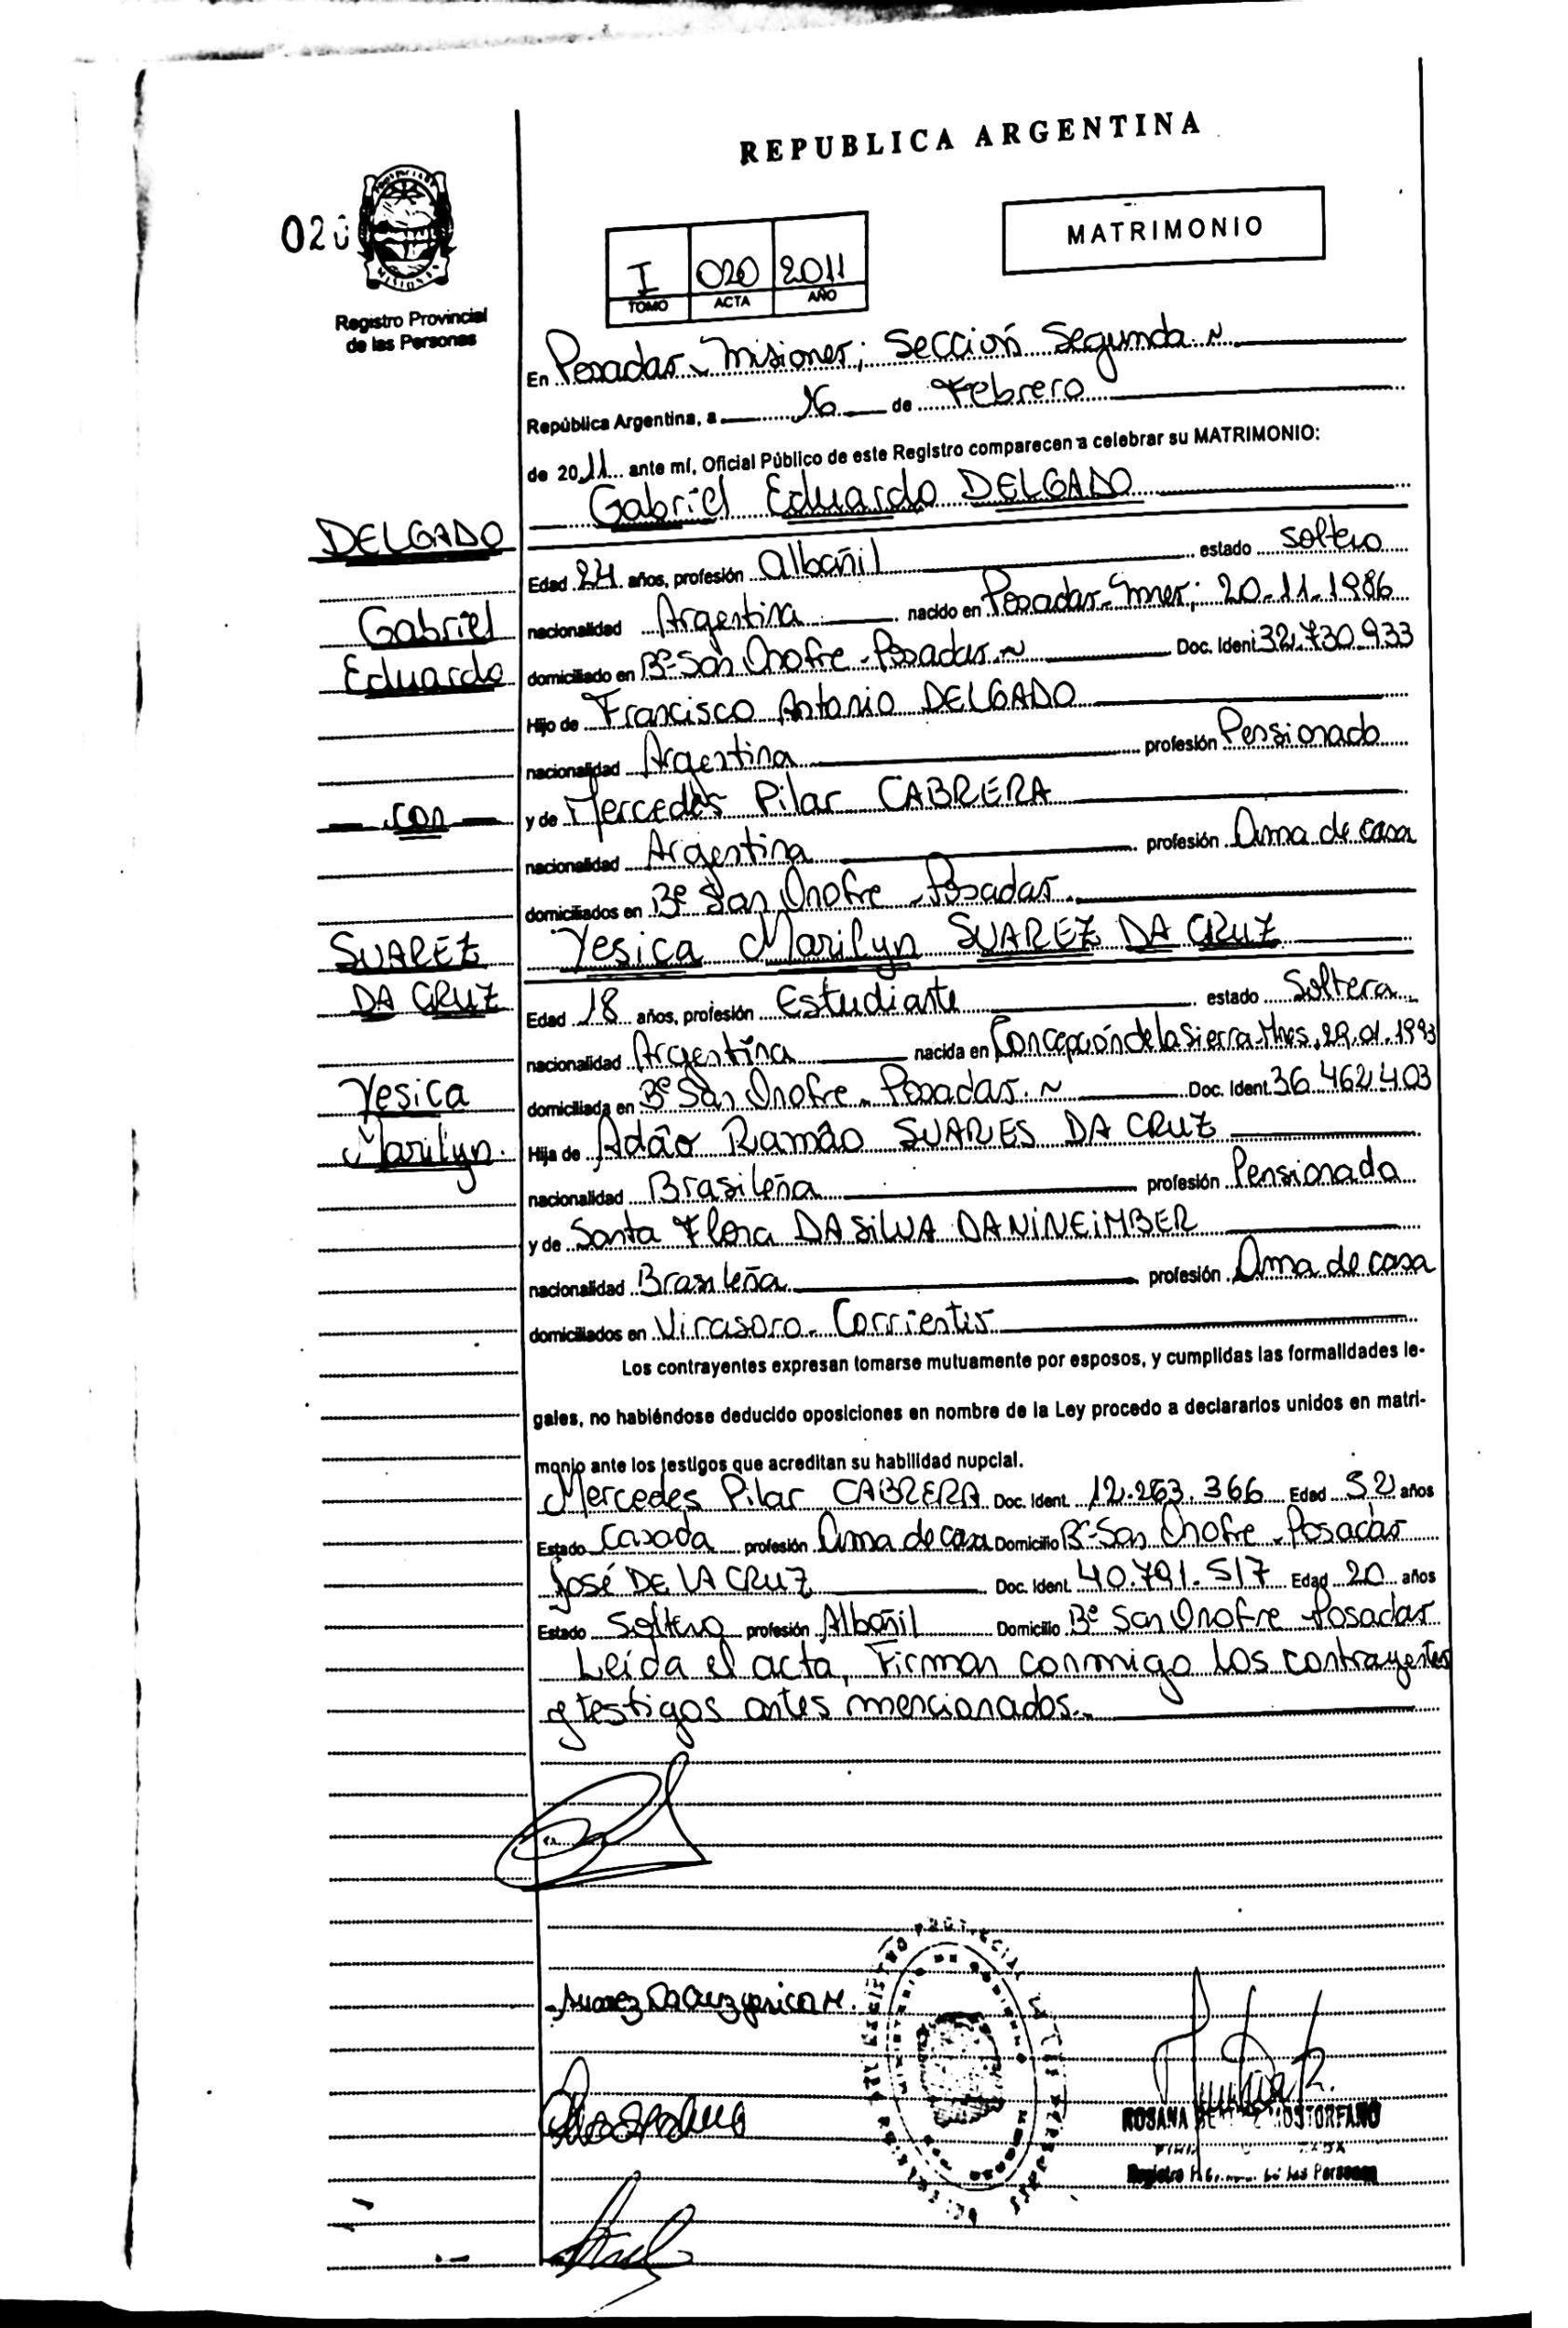 REPUBLICA ARGENTINA
020
MATRIMONIO
I 020 2011
TOMO ACTA AÑO
Registro Provincial
de las Personas
En Posadas - Misiones; Sección Segunda
República Argentina, a 16 de Febrero
de 2011 ante mí, Oficial Público de este Registro comparecen a celebrar su MATRIMONIO:
Gabriel Eduardo DELGADO
DELGADO
Edad 24 años, profesión albañil estado soltero
Gabriel
nacionalidad Argentina nacido en Posadas-Mnes; 20-11-1986
Eduardo
domiciliado en Bº San Onofre - Posadas Doc. Ident. 32.730.933
Hijo de Francisco Antonio DELGADO
nacionalidad Argentina profesión Pensionado
con
y de Mercedes Pilar CABRERA
nacionalidad Argentina profesión Ama de casa
domiciliados en Bº San Onofre - Posadas
SUAREZ
Yesica Marilyn SUAREZ DA CRUZ
DA CRUZ
Edad 18 años, profesión Estudiante estado Soltera
nacionalidad Argentina nacida en Concepción de la Sierra-Mnes, 29.01.1993
Yesica
domiciliada en Bº San Onofre - Posadas. Doc. Ident. 36.462.403
Marilyn.
Hija de Adão Ramão SUARES DA CRUZ
nacionalidad Brasileña profesión Pensionada
y de Santa Flora DA SILVA DANINEIMBER
nacionalidad Brasileña profesión Ama de casa
domiciliados en Virasoro - Corrientes
Los contrayentes expresan tomarse mutuamente por esposos, y cumplidas las formalidades le-
gales, no habiéndose deducido oposiciones en nombre de la Ley procedo a declararlos unidos en matri-
monio ante los testigos que acreditan su habilidad nupcial.
Mercedes Pilar CABRERA Doc. Ident. 12.263.366 Edad 52 años
Estado Casada profesión Ama de casa Domicilio Bº San Onofre - Posadas
José DE LA CRUZ Doc. Ident. 40.791.517 Edad 20 años
Estado Soltero profesión Albañil Domicilio Bº San Onofre - Posadas
Leída el acta, Firman conmigo los contrayentes
y testigos antes mencionados.
Suarez Da Cruz Yesica M.
ROSANA MOSTORFANO
Registro de las Personas